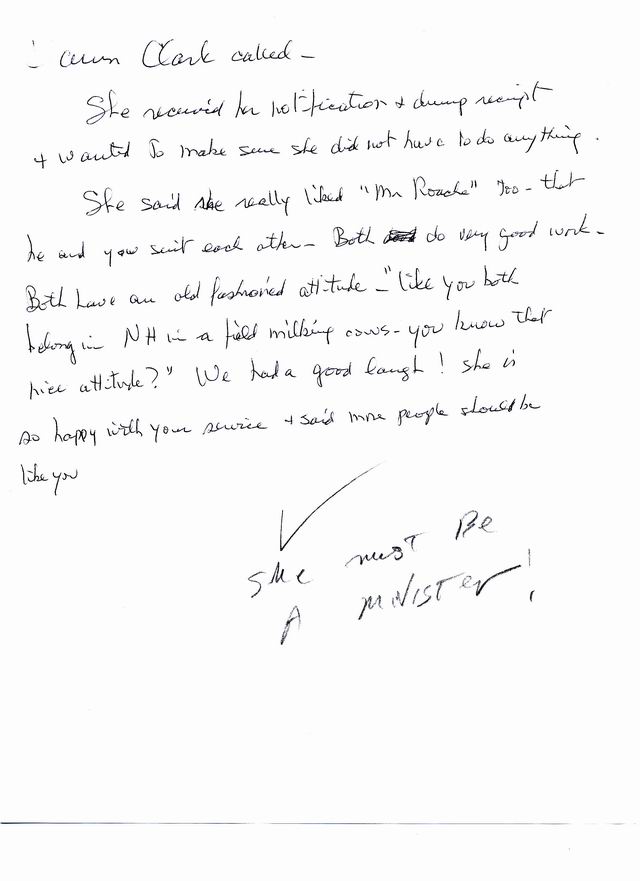 Clark called -
She received her notification + dump receipt
+ wanted to make sure she did not have to do anything.
She said she really liked "Mr Roache" too - that
he and you suit each other - Both do very good work -
Both have an old fashioned attitude - "like you both
belong in NH in a field milking cows - you know that
nice attitude?" We had a good laugh! She is
so happy with your service + said more people should be
like you
She must Be
A MINISTER!